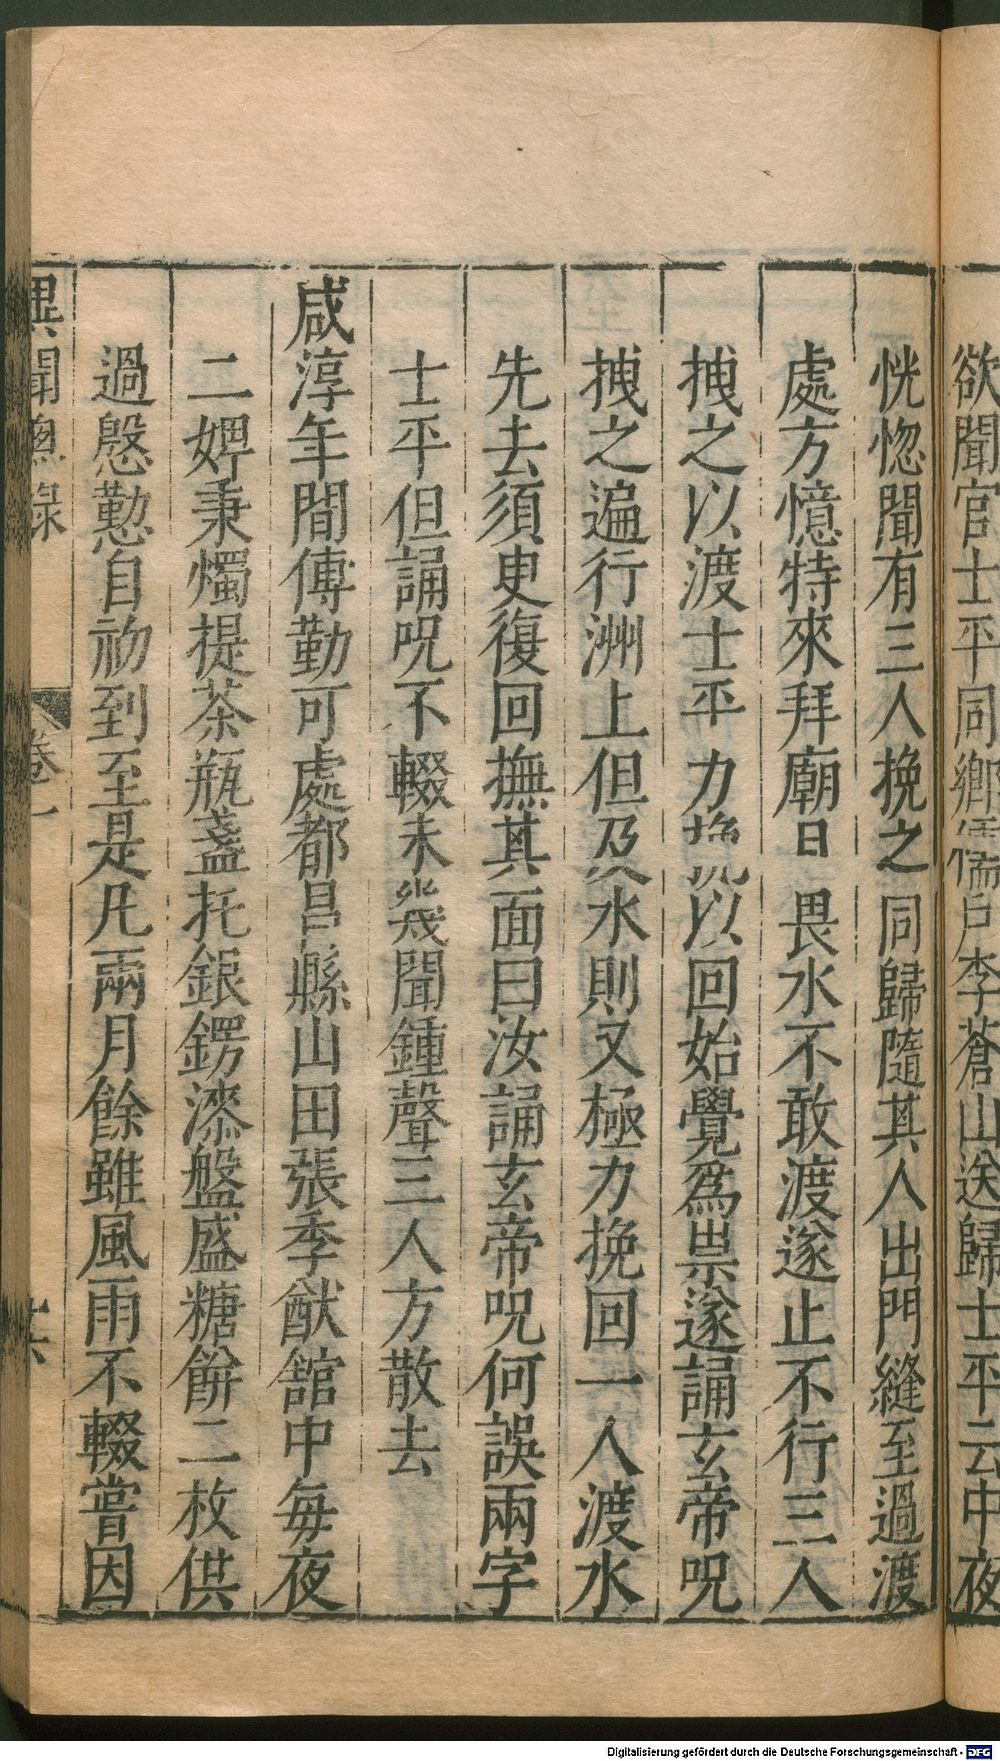 欲聞官士平同鄉儒戶李蒼山送歸士平云中夜
恍惚聞有三人挽之同歸隨其人出門縫至過渡
處方憶特來拜廟日畏水不敢渡遂止不行三人
拽之以渡士平力挽以回始覺爲祟遂誦玄帝呪
拽之遍行洲上但及水則又極力挽回一人渡水
先去須臾復回撫其面曰汝誦玄帝呪何誤兩字
士平但誦呪不輟未幾聞鍾聲三人方散去
咸淳年間傳勤可處都昌縣山田張季猷舘中每夜
二婢秉燭提茶瓶盞托銀鎊漆盤盛糖餅二枚供
過慇懃自初到至是凡兩月餘雖風雨不輟嘗因
異聞總錄 卷一 十六
Digitalisierung gefördert durch die Deutsche Forschungsgemeinschaft - DFG